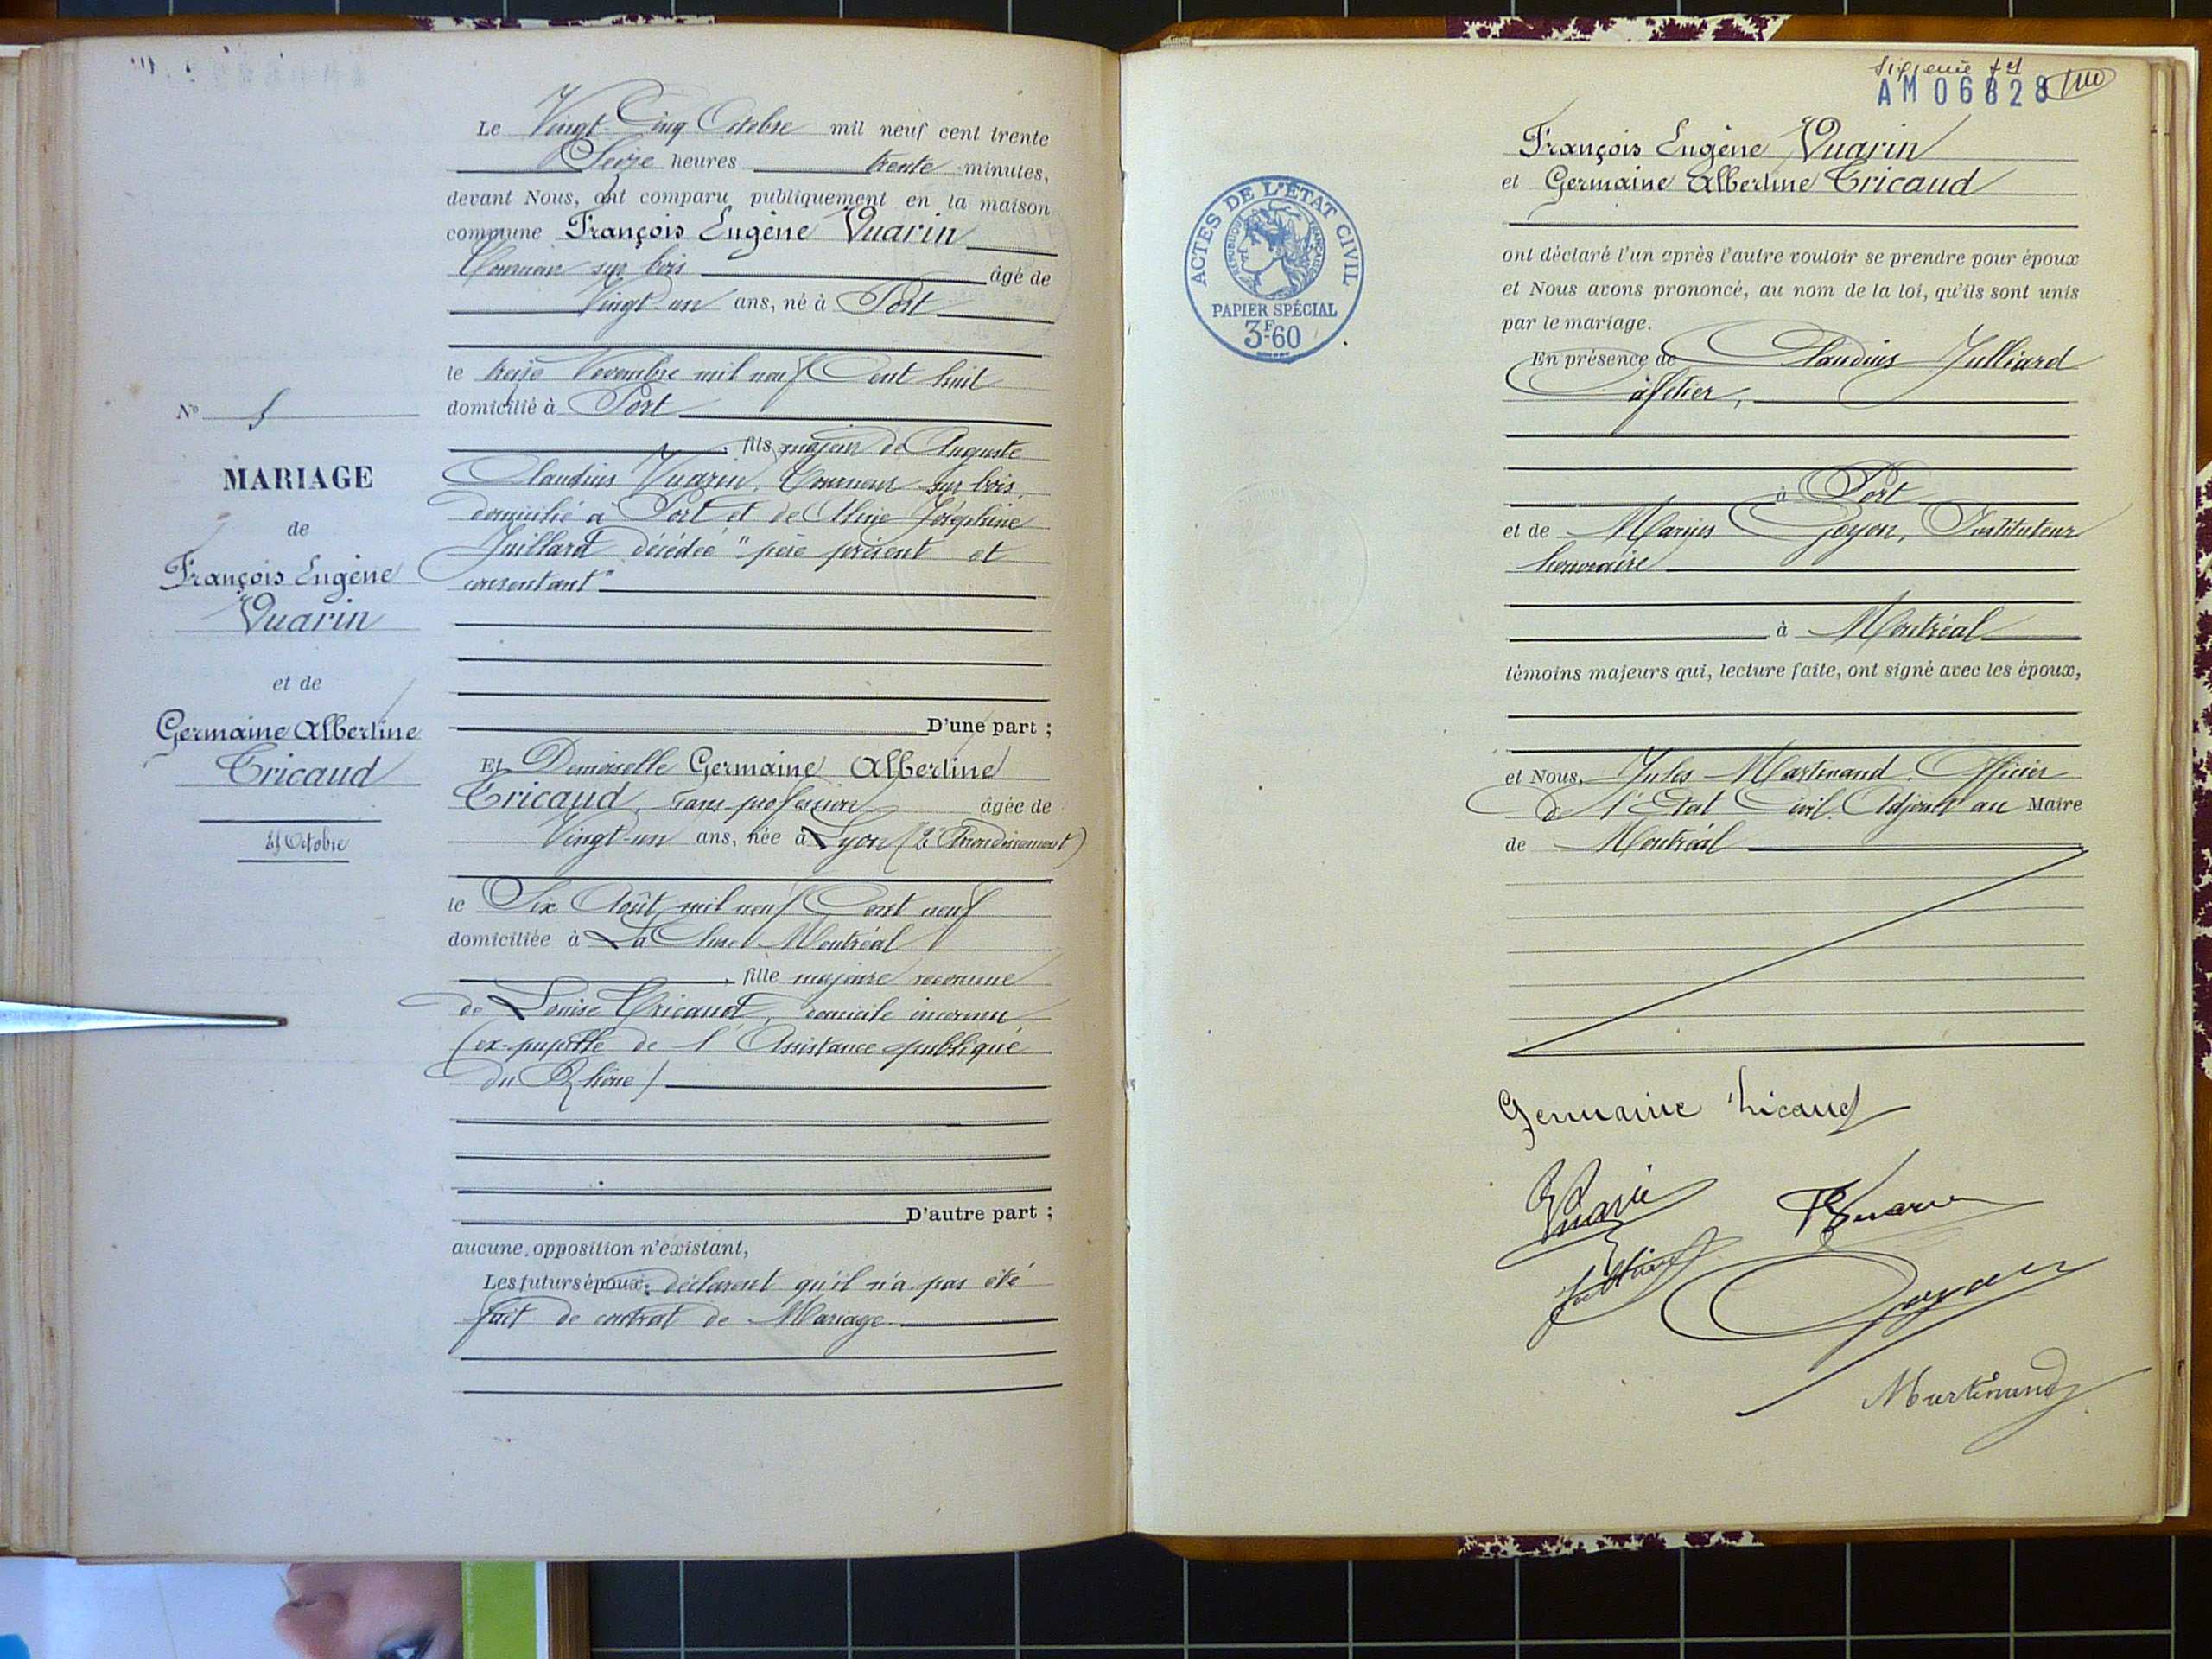 Le Vingt-Cinq Octobre mil neuf cent trente
Seize heures trente minutes,
devant Nous, ont comparu publiquement en la maison
commune François Eugène Vuarin
Tourneur sur bois âgé de
Vingt-un ans, né à Port
le treize Novembre mil neuf Cent huit
domicilié à Port
, fils majeur de Auguste
Claudius Vuarin, Tourneur sur bois,
domicilié à Port et de Aline Joséphine
Juillard décédée "père présent et
consentant"
D'une part ;
Et Demoiselle Germaine Albertine
Tricaud, sans profession âgée de
Vingt-un ans, née à Lyon (2e Arrondissement)
le Six Août mil neuf Cent neuf
domiciliée à La Cluse Montréal
, fille majeure reconnue
de Louise Tricaud, domicile inconnu
(ex-pupille de l'Assistance publique
du Rhône)
D'autre part ;
aucune opposition n'existant,
Les futurs époux déclarent qu'il n'a pas été
fait de contrat de Mariage.
No 5
MARIAGE
de
François Eugène
Vuarin
et de
Germaine Albertine
Tricaud
25 Octobre
AM 06828
François Eugène Vuarin
et Germaine Albertine Tricaud
ont déclaré l'un après l'autre vouloir se prendre pour époux
et Nous avons prononcé, au nom de la loi, qu'ils sont unis
par le mariage.
En présence de Claudius Julliard
Cafetier,
à Port
et de Goyon, Instituteur
honoraire
à Montréal
témoins majeurs qui, lecture faite, ont signé avec les époux,
et Nous, Jules Martinand, Officier
de l'Etat Civil, Adjoint au Maire
de Montréal
ACTES DE L'ÉTAT CIVIL
RÉPUBLIQUE FRANÇAISE
PAPIER SPÉCIAL
3F60
Germaine Tricaud
Vuarin
Vuarin
Julliard
Goyon
Martinand